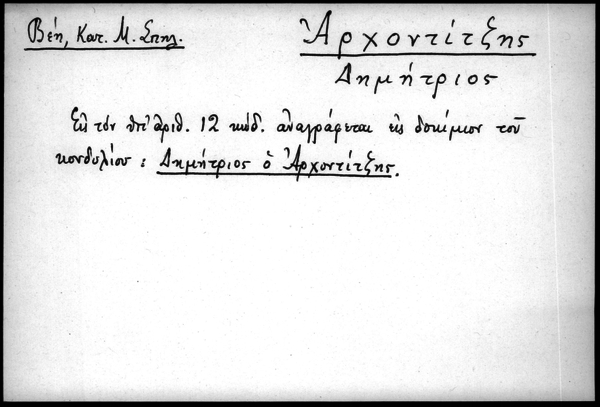 Βέη, Κατ. Μ. Σπηλ.
Ἀρχοντίτζης
Δημήτριος
Εἰς τόν ὑπ' ἀριθ. 12 κώδ. ἀναγράφεται εἰς δοκίμιον τοῦ
κονδυλίου : Δημήτριος ὁ Ἀρχοντίτζης.